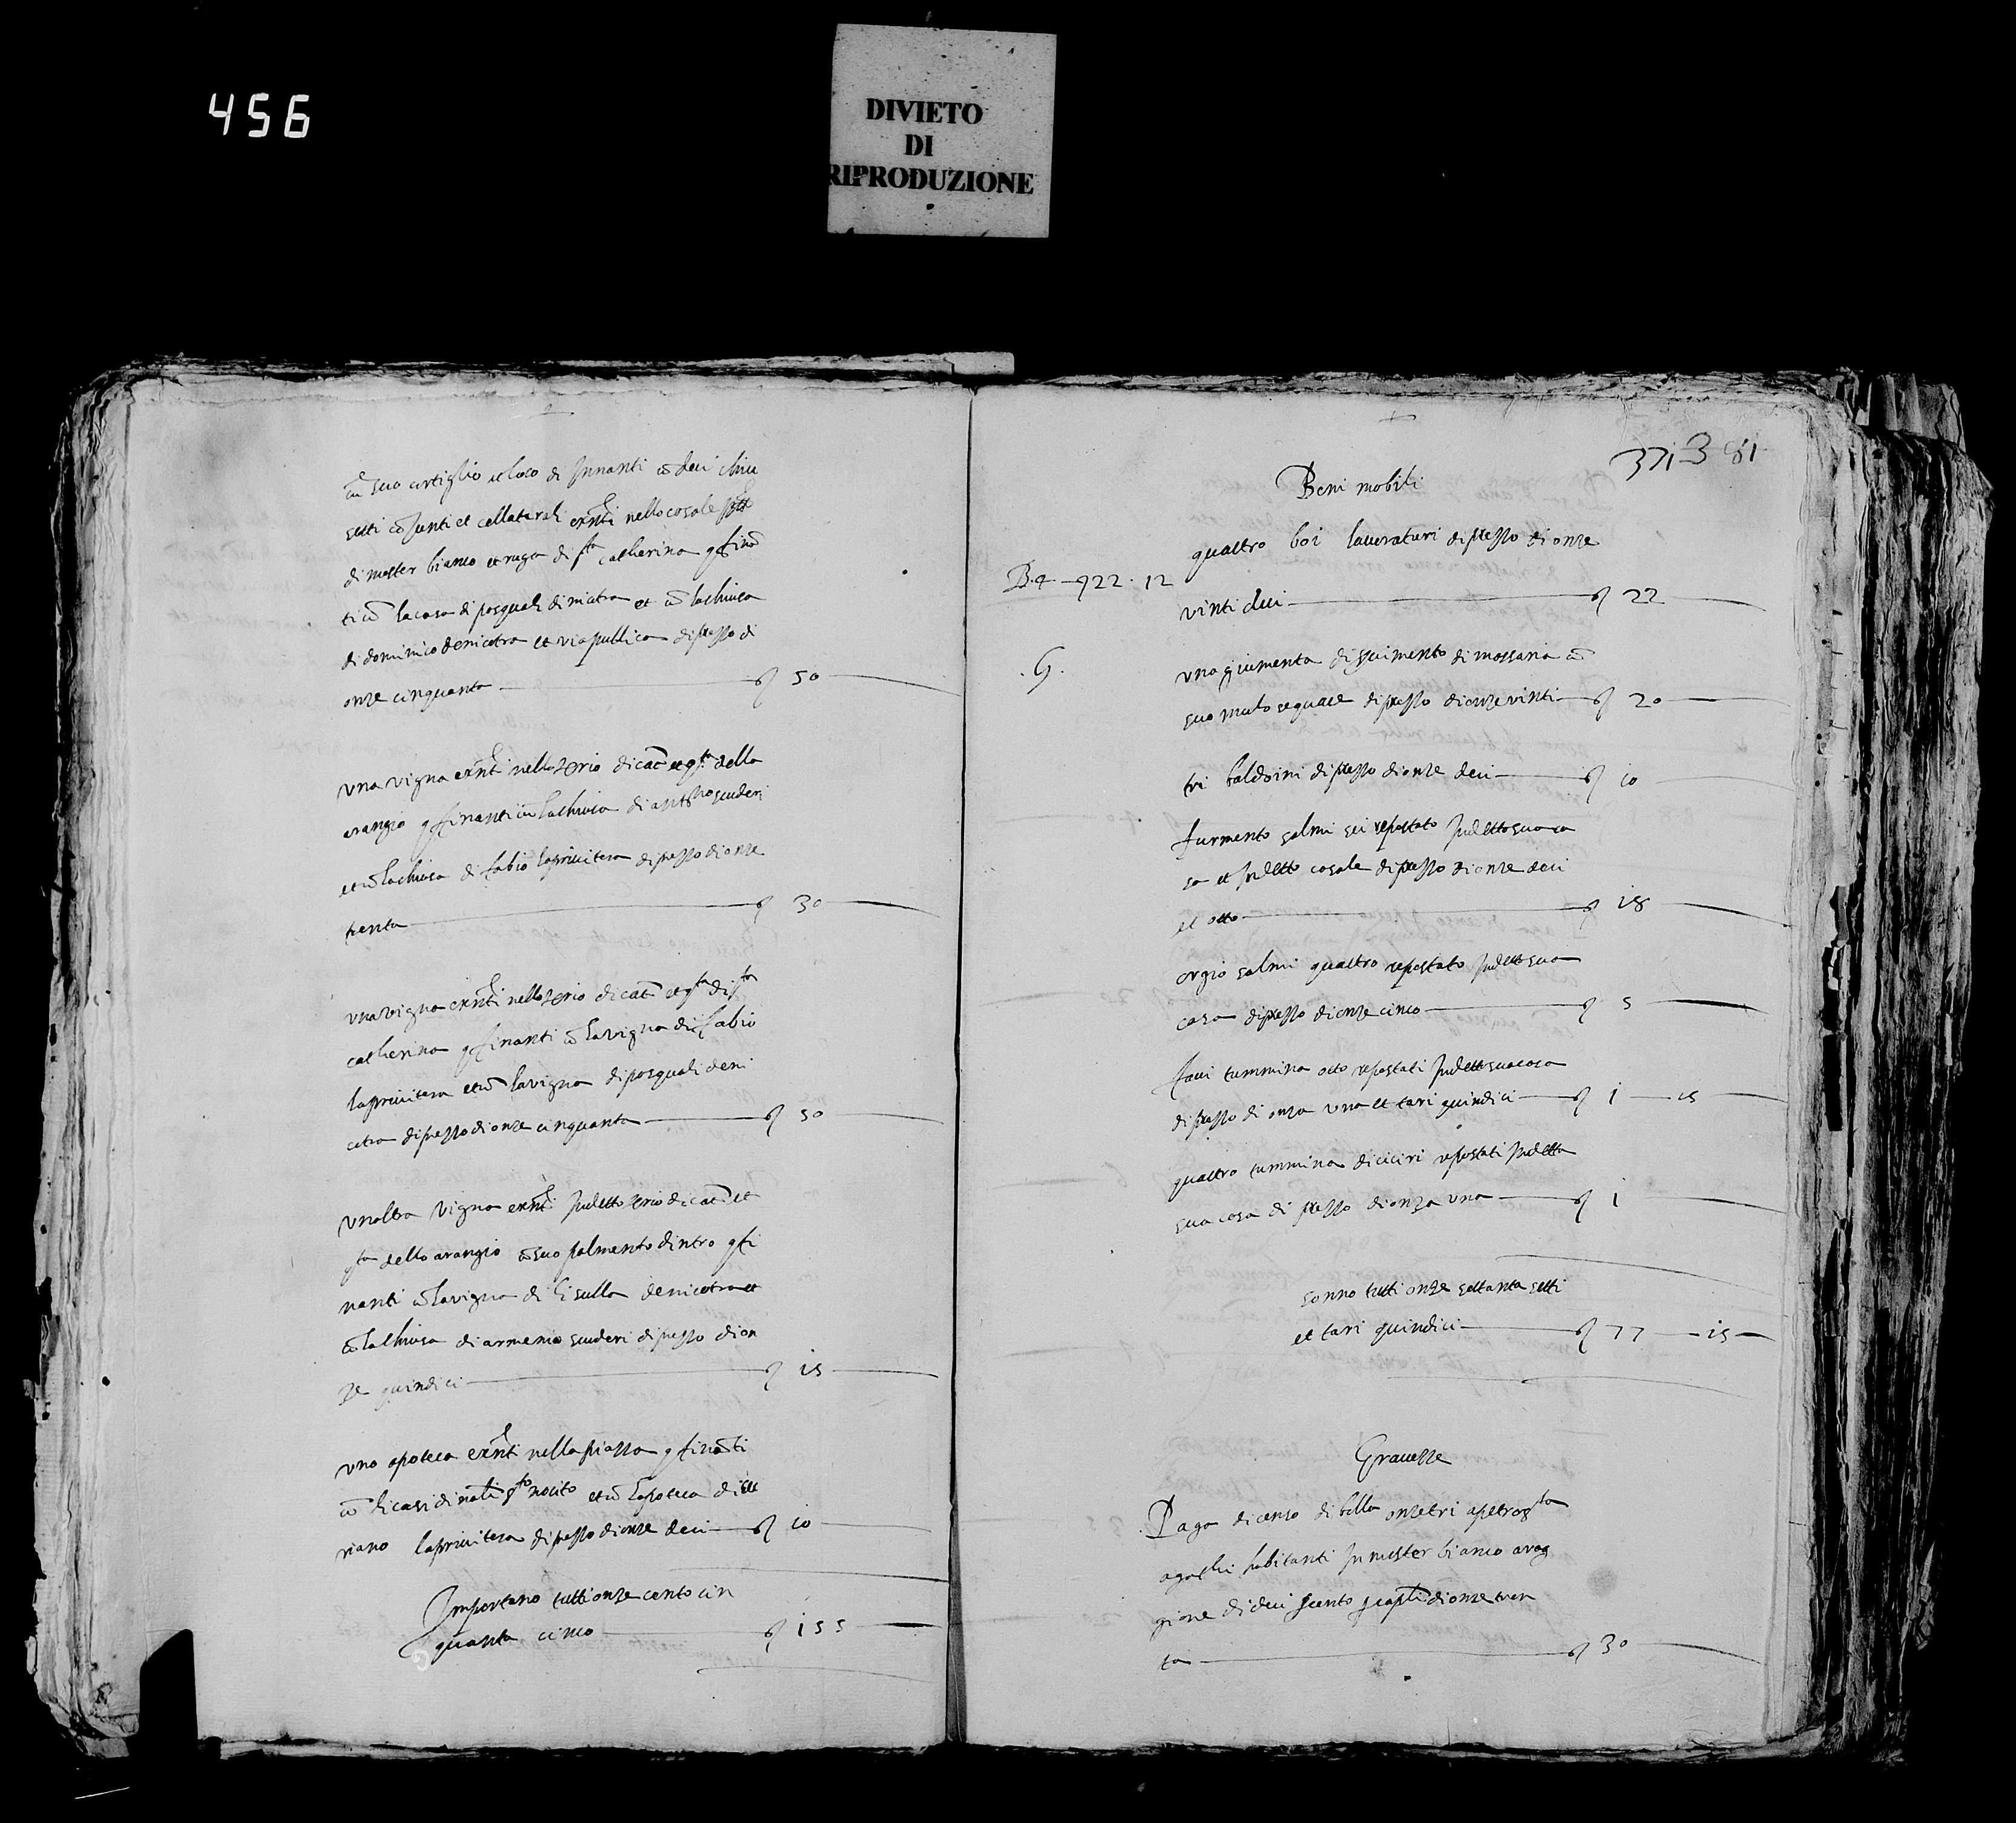 456
DIVIETO
DI
RIPRODUZIONE
cū suo cortiglio et loco di Innanti cō deci chiu
setti cōiunti et collaterali exñti nello casale
di muster bianco et ruga di sta catherina
ti cū la casa di pasquali di nicotra et cō la chiusa
di dominico de nicotra et via publica di prezzo di
onze cinquanta 50
una vigna exñti nello terrio di catā et della
arangio finanti cū la chiusa di scuderi
et cō la chiusa di fabio la privitera di prezzo di onze
trenta 30
una vigna exñti nello terrio di catā et di sta
catherina finanti cō la vigna di fabio
la privitera et cō la vigna di pasquali de ni
cotra di prezzo di onze cinquanta 50
un altra vigna exñti In detto terrio di catā et
dello arangio cō suo palmento dintro
nanti cō la vigna di de nicotra et
cō la chiusa di armenio scuderi di prezzo di on
ze quindici 15
una apoteca exñti nella piazza
cō li casi di et cō la poteca di
riano la privitera di prezzo di onze deci 10
Importano tutti onze cento cin
quanta cinco 155
371 381
Beni mobili
quattro boi lavoraturi di prezzo di onze
B. 4 922. 12
vinti dui 22
G.
una giumenta di di massaria cō
suo mulo sequace di prezzo di onze vinti 20
tri baldoini di prezzo di onze deci 10
furmento salmi sei repostato In detto sua ca
sa et In detto casale di prezzo di onze deci
et otto 18
orgio salmi quattro repostato In detto sua
casa di prezzo di onze cinco 5
favi tummina otto repostati In detto sua casa
di prezzo di onza una et tari quindici 1 15
quattro tummina di ciciri repostati In detta
sua casa di prezzo di onza una 1
sonno tutti onze settanta setti
et tari quindici 77 15
Gravezze
Paga di censo di bolla onze tri a petro
habitanti In muster bianco a rag
gione di deci per cento di onze tren
ta 30